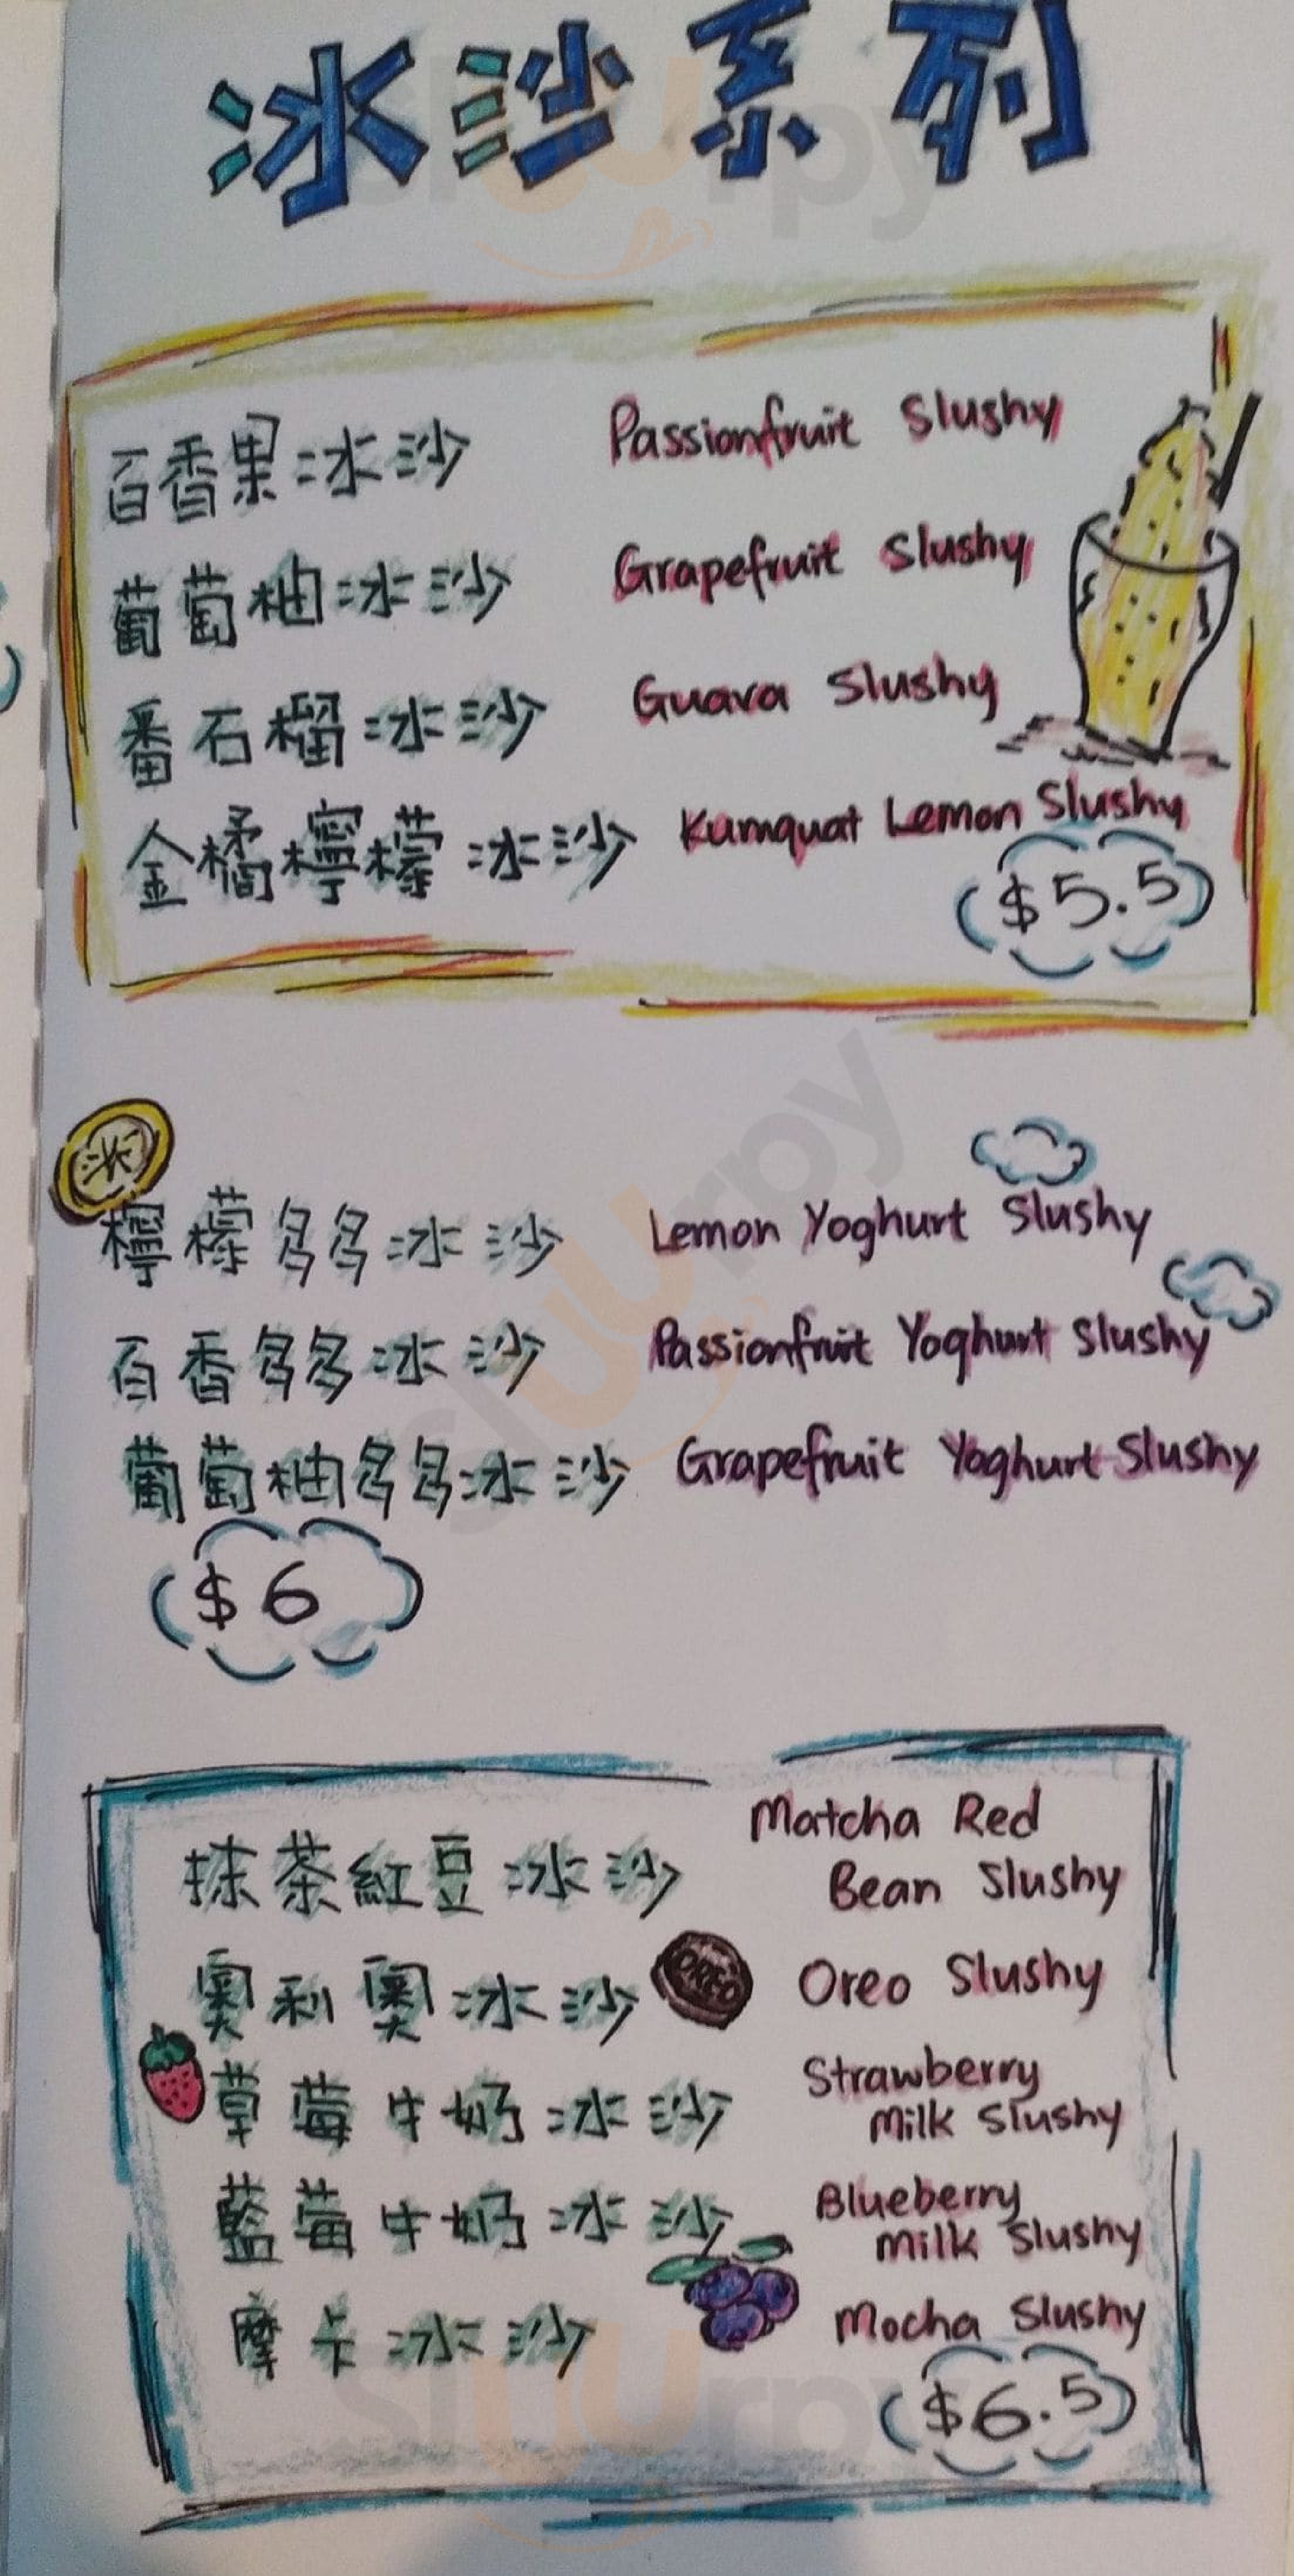 冰沙系列
百香果冰沙 Passionfruit Slushy
葡萄柚冰沙 Grapefruit Slushy
番石榴冰沙 Guava Slushy
金橘檸檬冰沙 Kumquat Lemon Slushy
$5.5
檸檬多多冰沙 Lemon Yoghurt Slushy
百香多多冰沙 Passionfruit Yoghurt Slushy
葡萄柚多多冰沙 Grapefruit Yoghurt Slushy
$6
抹茶紅豆冰沙 Matcha Red
Bean Slushy
奧利奧冰沙 OREO Oreo Slushy
草莓牛奶冰沙 Strawberry
Milk Slushy
藍莓牛奶冰沙 Blueberry
Milk Slushy
摩卡冰沙 Mocha Slushy
$6.5
slurrpy
slurrpy
slurrpy